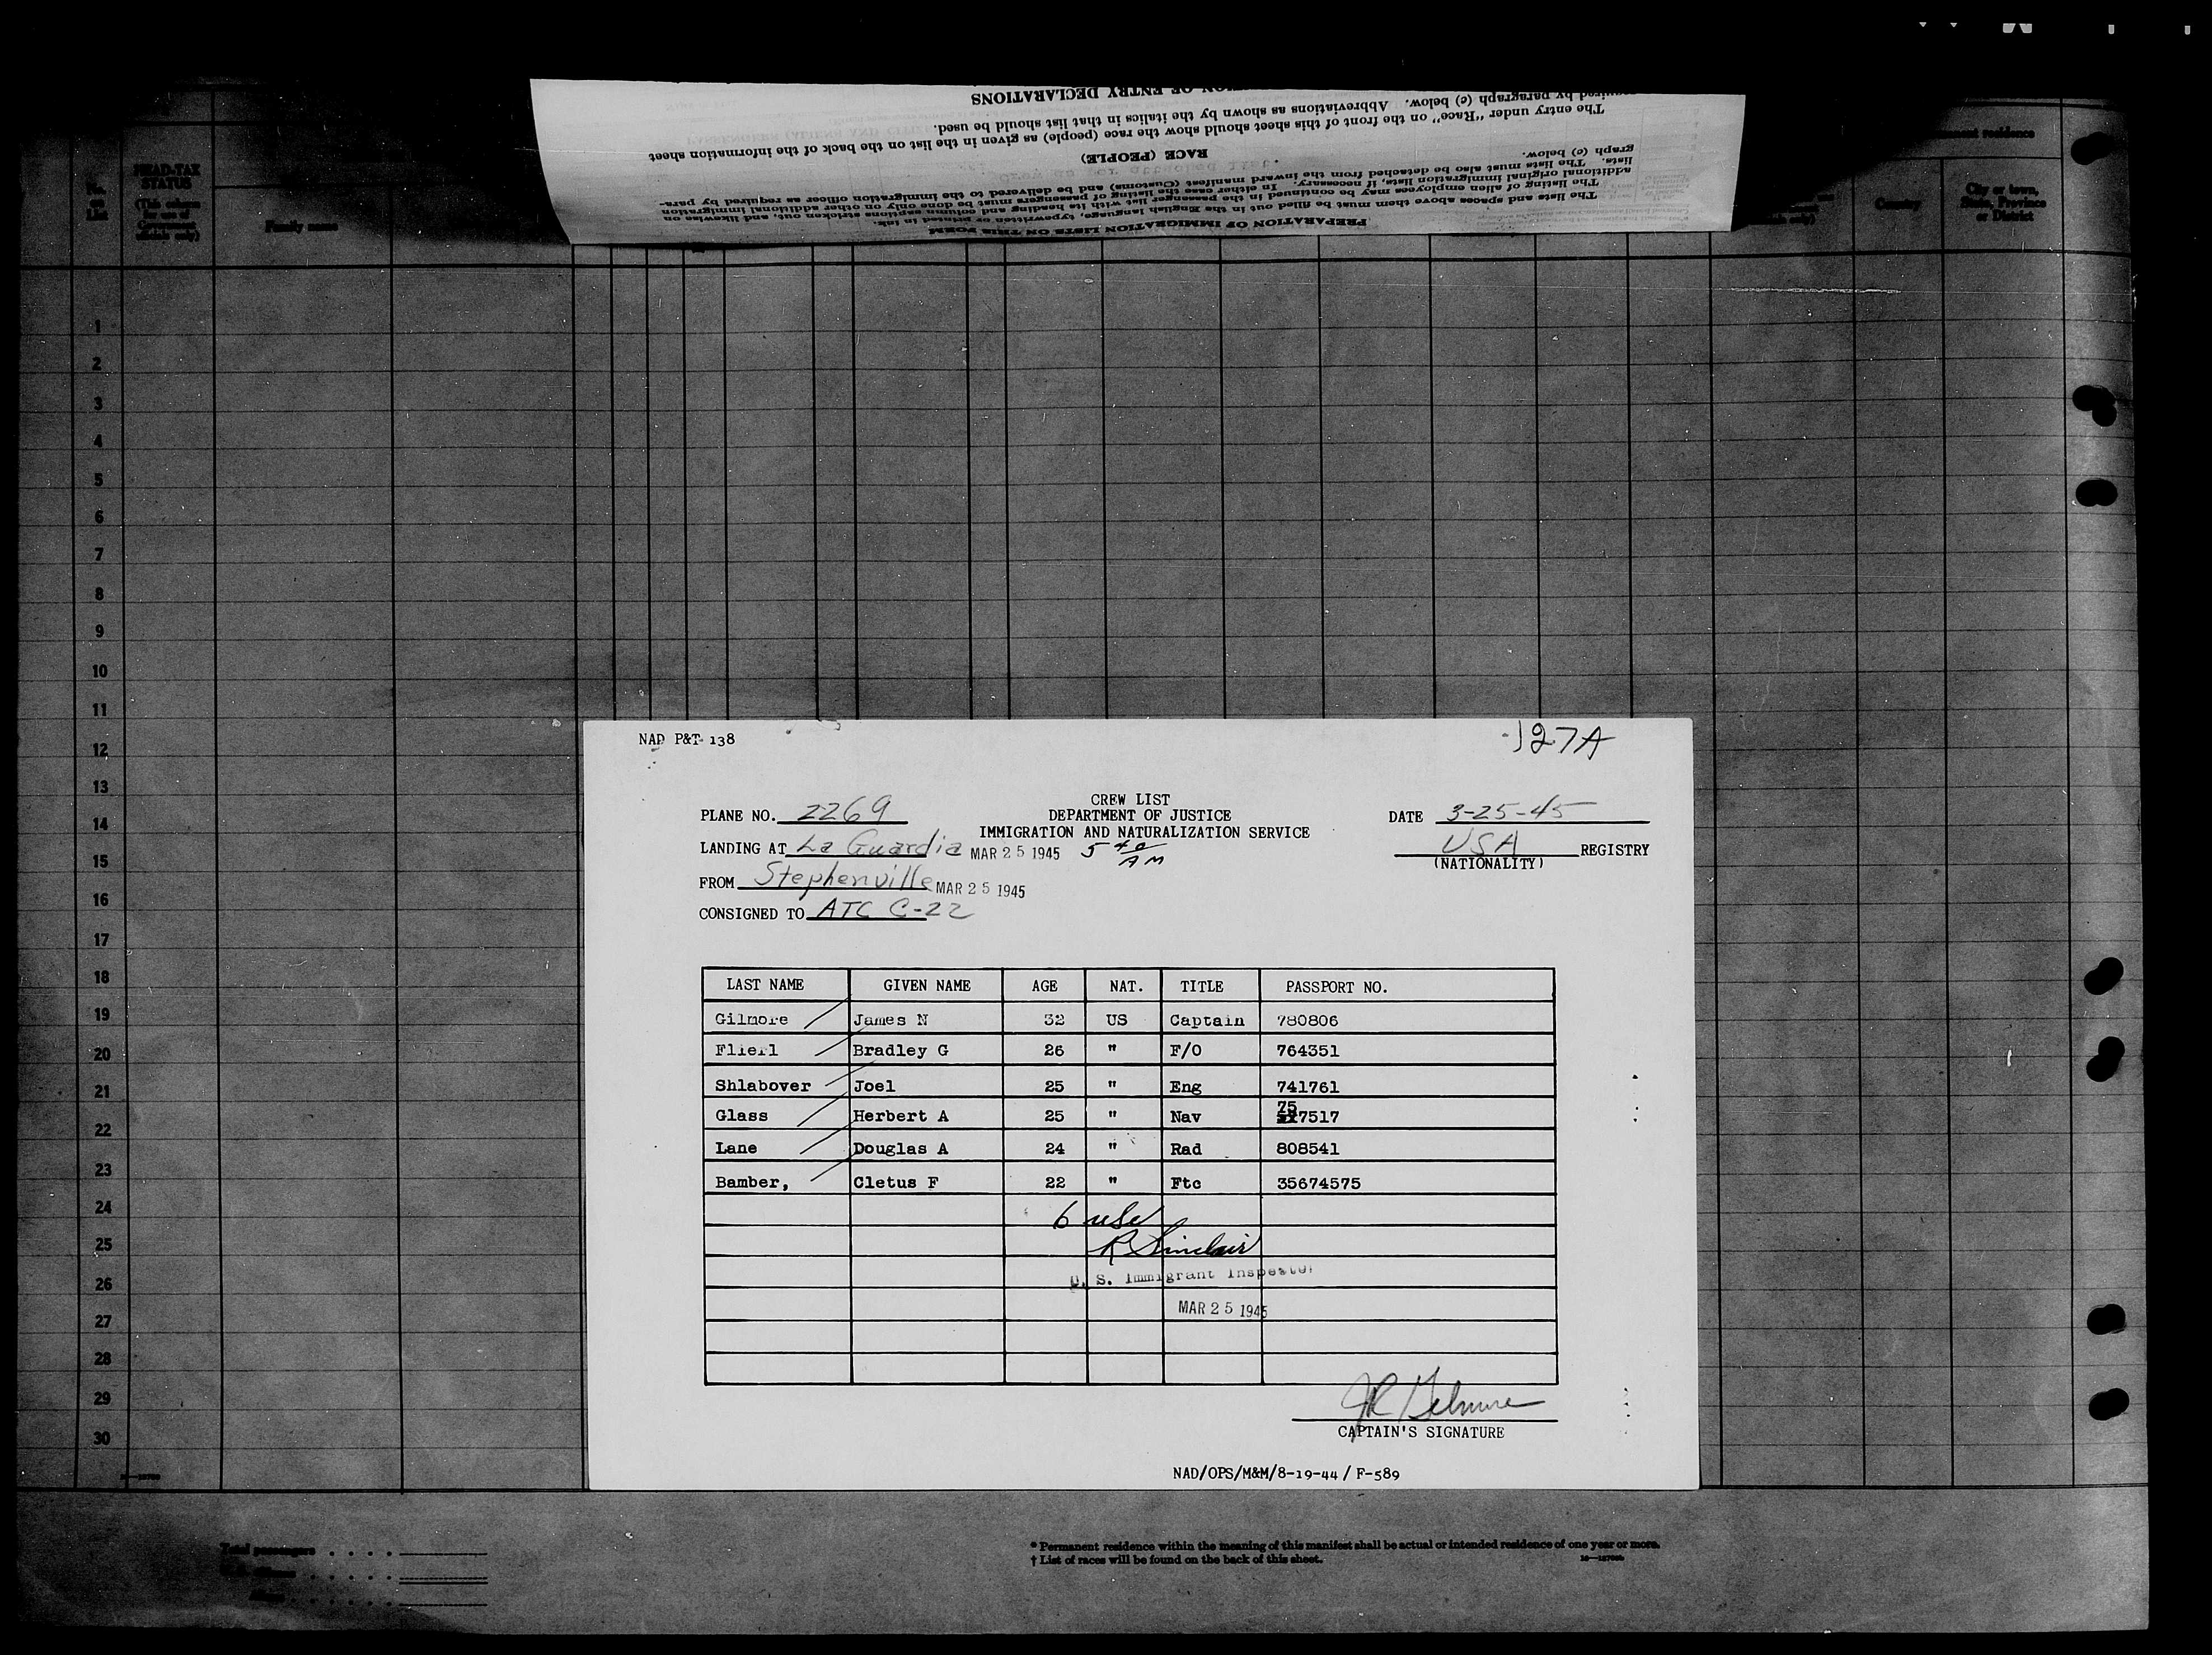 SNOITARALCED YRTNE FO NOI
required by paragraph (c) below.
The entry under "Race" on the front of this sheet should show the race (people) as given in the list on the back of the information sheet
Abbreviations as shown by the italics in that list should be used.
RACE (PEOPLE)
PREPARATION OF IMMIGRATION LISTS ON THIS FORM
The lists and spaces above them must be filled out in the English language, typewritten or printed in ink.
The listing of alien employees may be continued in the passenger list with its heading and column captions stricken out, and likewise on
additional original immigration lists, if necessary. In either case the listing of passengers must be done only on other additional immigration
lists. The lists must also be detached from the inward manifest (Customs) and be delivered to the immigration officer as required by para-
graph (c) below.
No. on List
HEAD-TAX STATUS
(This column for use of Government officials only)
Family name
Country
City or town, State, Province or District
1
2
3
4
5
6
7
8
9
10
11
12
13
14
15
16
17
18
19
20
21
22
23
24
25
26
27
28
29
30
NAD P&T 138
127A
CREW LIST
PLANE NO. 2269 DEPARTMENT OF JUSTICE DATE 3-25-45
IMMIGRATION AND NATURALIZATION SERVICE
LANDING AT La Guardia MAR 25 1945 5 40 AM USA REGISTRY
(NATIONALITY)
FROM Stephenville MAR 25 1945
CONSIGNED TO ATC C-22
LAST NAME GIVEN NAME AGE NAT. TITLE PASSPORT NO.
Gilmore James N 32 US Captain 780806
Flierl Bradley G 26 " F/O 764351
Shlabover Joel 25 " Eng 741761
Glass Herbert A 25 " Nav 757517
Lane Douglas A 24 " Rad 808541
Bamber, Cletus F 22 " Ftc 35674575
6 usc
R Sinclair
U. S. Immigrant Inspector
MAR 25 1945
JR Gilmore
CAPTAIN'S SIGNATURE
NAD/OPS/M&M/8-19-44 / F-589
Total passengers
* Permanent residence within the meaning of this manifest shall be actual or intended residence of one year or more.
† List of races will be found on the back of this sheet.